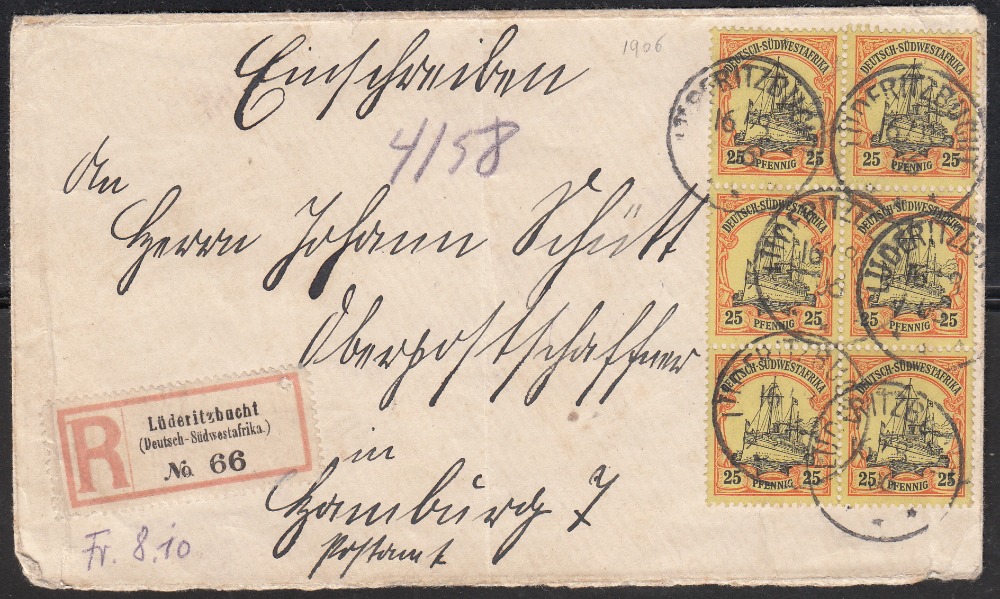 Einschreiben
1906
4/158
An
Herrn Johann Schütt
Oberpostschaffner
in
Hamburg 7
Postamt
R
Lüderitzbucht
(Deutsch-Südwestafrika.)
No. 66
Fr. 8.10
DEUTSCH-SÜDWESTAFRIKA
25 PFENNIG 25
DEUTSCH-SÜDWESTAFRIKA
25 PFENNIG 25
DEUTSCH-SÜDWESTAFRIKA
25 PFENNIG 25
DEUTSCH-SÜDWESTAFRIKA
25 PFENNIG 25
DEUTSCH-SÜDWESTAFRIKA
25 PFENNIG 25
DEUTSCH-SÜDWESTAFRIKA
25 PFENNIG 25
LÜDERITZBUCHT
LÜDERITZBUCHT